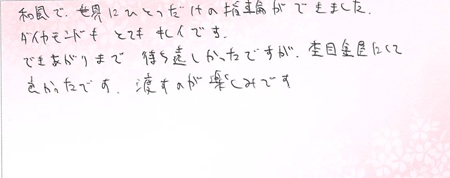 和風で、世界にひとつだけの指輪ができました。
ダイヤモンドも とても キレイです。
できあがりまで 待ち遠しかったですが、杢目金屋にして
良かったです。渡すのが楽しみです